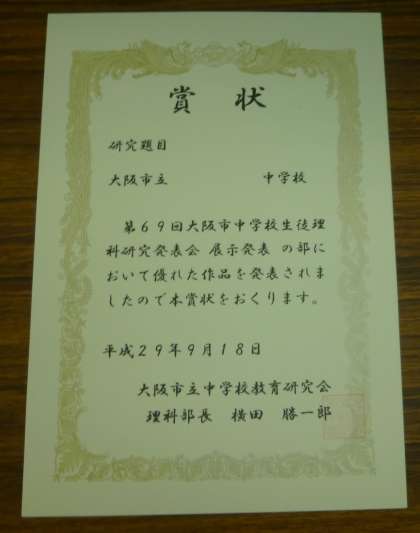 賞 状
研究題目
大阪市立 中学校
第69回大阪市中学校生徒理
科研究発表会 展示発表 の部に
おいて優れた作品を発表されま
したので本賞状をおくります。
平成29年9月18日
大阪市立中学校教育研究会
理科部長 横田 勝一郎